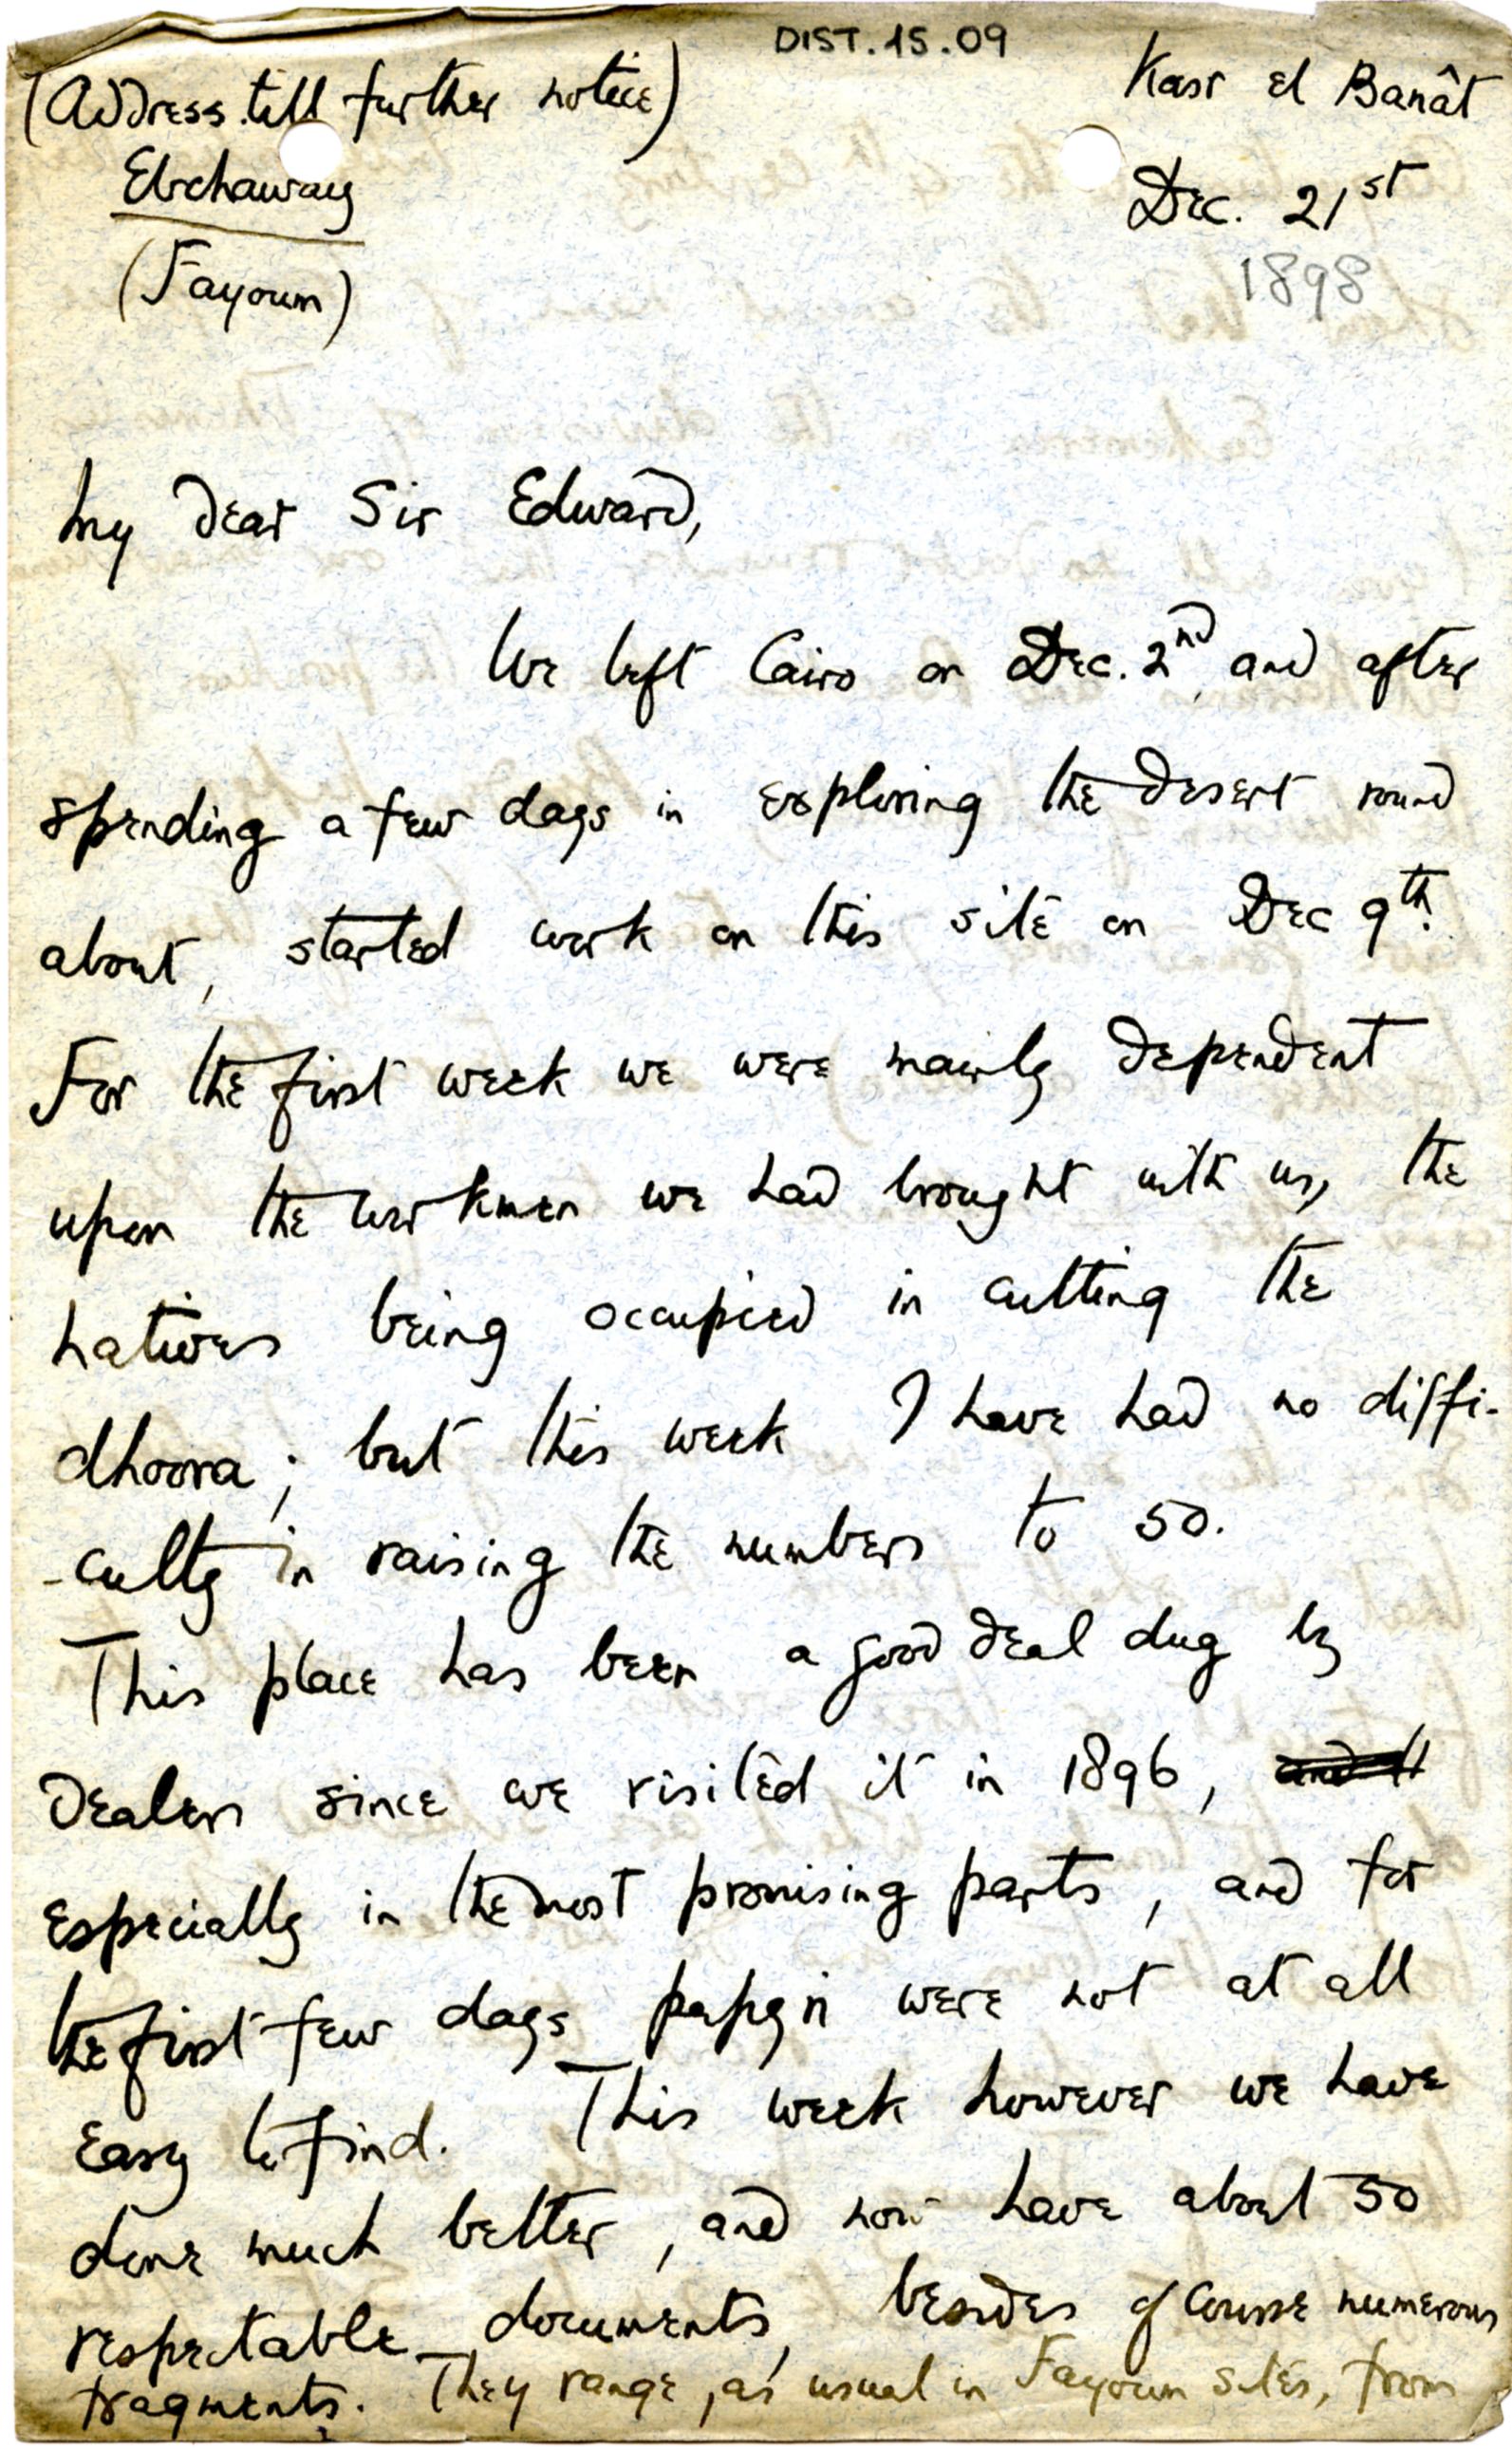 DIST.15.09
(Address till further notice)
Kasr el Banât
Ebchaway
Dec. 21st
(Fayoum)
1898
My dear Sir Edward,
We left Cairo on Dec. 2nd, and after
spending a few days in exploring the desert round
about, started work on this site on Dec 9th.
For the first week we were mainly dependent
upon the workmen we had brought with us, the
natives being occupied in cutting the
dhoora; but this week I have had no diffi-
-culty in raising the numbers to 50.
This place has been a good deal dug by
dealers since we visited it in 1896,
especially in the most promising parts, and for
the first few days papyri were not at all
easy to find. This week however we have
done much better, and now have about 50
respectable documents, besides of course numerous
fragments. They range, as usual in Fayoum sites, from